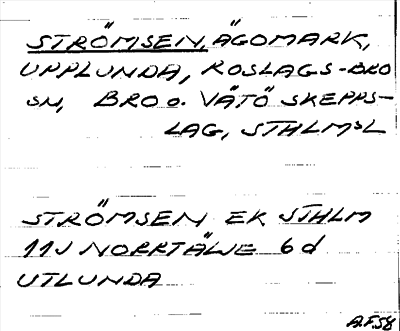 STRÖMSEN, ÄGOMARK,
UPPLUNDA, ROSLAGS-BRO
SN, BRO o. VÄTÖ SKEPPS-
LAG, STHLMSL
STRÖMSEN EK STHLM
11J NORRTÄLJE 6d
UTLUNDA
A.F.58